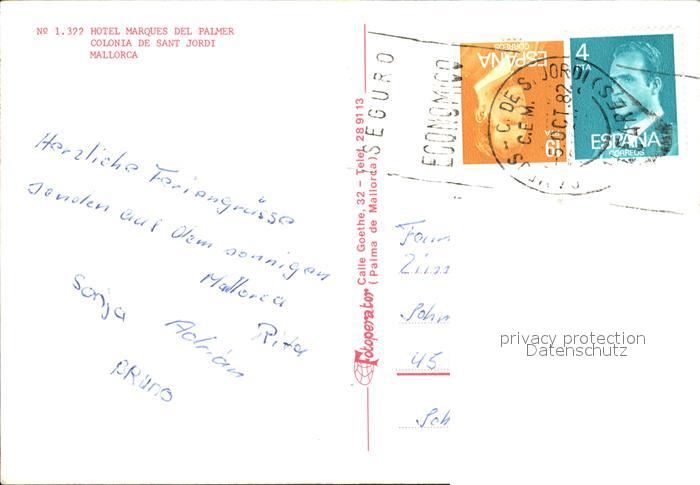 Nº 1.3?? HOTEL MARQUES DEL PALMER
COLONIA DE SANT JORDI
MALLORCA
Herzliche Feriengrüsse
senden aus dem sonnigen
Mallorca
Sonja Adrian Rita
BRUNO
Fotoperator Calle Goethe, 32 – Telef. 28 91 13
(Palma de Mallorca)
SEGURO
ECONOMICO
ESPAÑA
CORREOS
4 PTA
ESPAÑA
CORREOS
C. DE S. JORDI
OCT. 82
Fam
45
privacy protection
Datenschutz